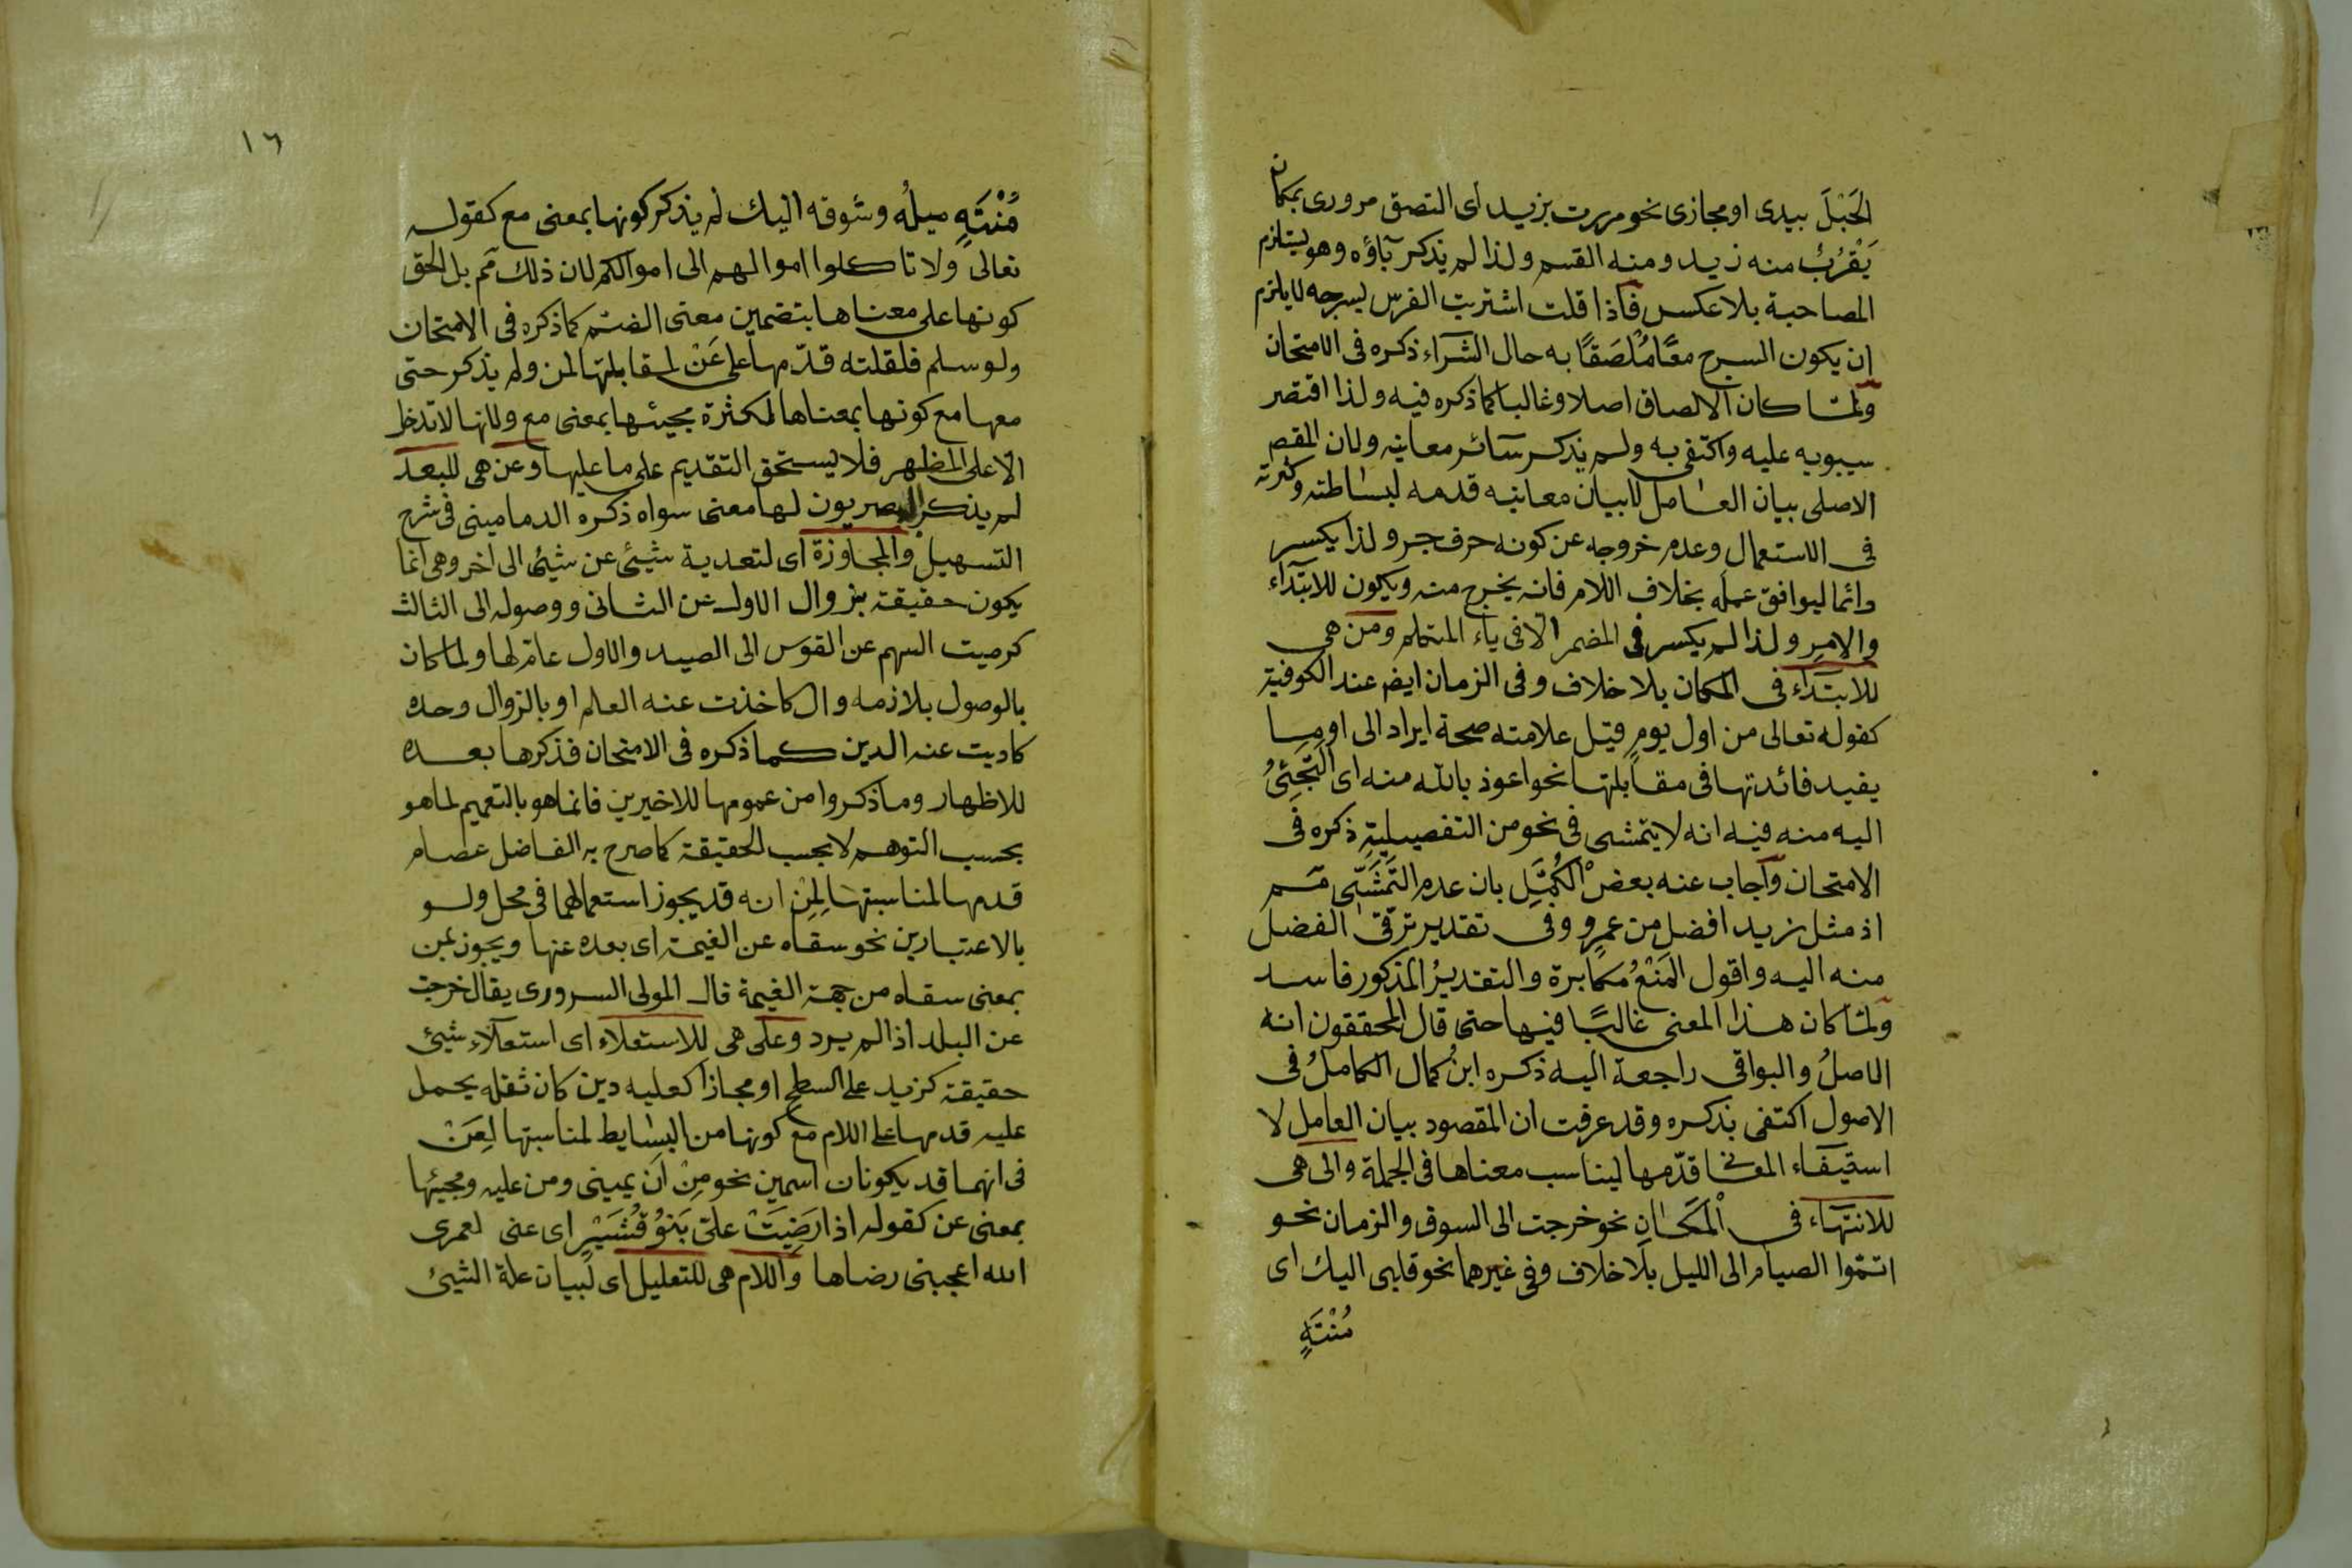 الحَبْلَ بيدى او مجازى نحو مررت بزيد اى التصق مرورى بمكان
يَقْرُبُ منه زيد ومنه القسم ولذا لم يذكر باؤه وهو يستلزم
المصاحبة بلا عكس فاذا قلت اشتريت الفرس بسرجه لا يلزم
ان يكون السرج معًا مُلْصَقًا به حال الشراء ذكره فى الامتحان
ولمّا كان الالصاق اصلا وغالبا كما ذكره فيه ولذا اقتصر
سيبويه عليه واكتفى به ولم يذكر سائر معانيه ولان المقصد
الاصلى بيان العامل لا بيان معانيه قدمه لبساطته وكثرته
فى الاستعمال وعدم خروجه عن كونه حرف جر ولذا يكسر
دائما ليوافق عمله بخلاف اللام فانه يخرج منه ويكون للابتداء
والامر ولذا لم يكسر فى المضمر الا فى ياء المتكلم ومن هى
للابتداء فى المكان بلا خلاف وفى الزمان ايضا عند الكوفية
كقوله تعالى من اول يومٍ قيل علامته صحة ايراد الى او ما
يفيد فائدتها فى مقابلتها نحو اعوذ بالله منه اى اَلْتَجِئُ
اليه منه فيه انه لا يتمشى فى نحو من التفصيلية ذكره فى
الامتحان واجاب عنه بعض الكُمَّلِ بان عدم التَمَشّى مم
اذ مثل زيد افضل من عمرٍو وفى تقدير ترقّى الفضل
منه اليه واقول المَنْعُ مكابرة والتقديرُ المذكور فاسد
ولمّا كان هذا المعنى غالبًا فيها حتى قال المحققون انه
الاصلُ والبواقى راجعة اليه ذكره ابنُ كمال الكاملُ فى
الاصول اكتفى بذكره وقد عرفت ان المقصود بيان العامل لا
استيفاء المعانى قدّمها ليناسب معناها فى الجملة والى هى
للانتهاء فى المَكَانِ نحو خرجت الى السوق والزمان نحو
اتمّوا الصيام الى الليل بلا خلاف وفى غيرهما نحو قلبى اليك اى
مُنْتَهٍ
١٦
مُنْتَهٍ ميلُه وشوقه اليك لم يذكر كونها بمعنى مع كقوله
تعالى ولا تاكلوا اموالهم الى اموالكم لان ذلك مم بل الحق
كونها على معناها بتضمين معنى الضم كما ذكره فى الامتحان
ولو سلم فلقلته قدّمها على عَنْ لمقابلتها لمن ولم يذكر حتى
معها مع كونها بمعناها لكثرة مجيئها بمعنى مع ولانها لا تدخل
الا على المظهر فلا يستحق التقديم على ما عليها وعن هى للبعد
لم يذكر البصريون لها معنى سواه ذكره الدمامينى فى شرح
التسهيل والمجاوزة اى لتعدية شيئ عن شيئ الى اخر وهى انما
يكون حقيقة بزوال الاول عن الثانى ووصوله الى الثالث
كرميت السهم عن القوس الى الصيد والاول عام لها ولما كان
بالوصول بلازمه وال كاخذت عنه العلم او بالزوال وحده
كاديت عنه الدين كما ذكره فى الامتحان فذكرها بعده
للاظهار وما ذكروا من عمومها للاخيرين فانما هو بالتعميم لما هو
بحسب التوهم لا بحسب الحقيقة كما صرح به الفاضل عصام
قدمها لمناسبتها لِمِن انه قد يجوز استعمالهما فى محل ولو
بالاعتبارين نحو سقاه عن الغيمة اى بعده عنها ويجوز بمن
بمعنى سقاه من جهة الغيمة قال المولى السرورى يقال خرجت
عن البلد اذا لم يرد وعلى هى للاستعلاء اى استعلاء شيئ
حقيقة كزيد على السطح او مجازا كعليه دين كان ثقله يحمل
عليه قدمها على اللام مع كونها من البسايط لمناسبتها لِعَنْ
فى انهما قد يكونان اسمين نحو مِنْ عَن يمينى ومن عليه ومجيئها
بمعنى عن كقوله اذا رَضِيَتْ علىّ بَنُو قُشَيْرٍ اى عنى لعمرى
الله اعجبنى رضاها واللام هى للتعليل اى لبيان علة الشيئ